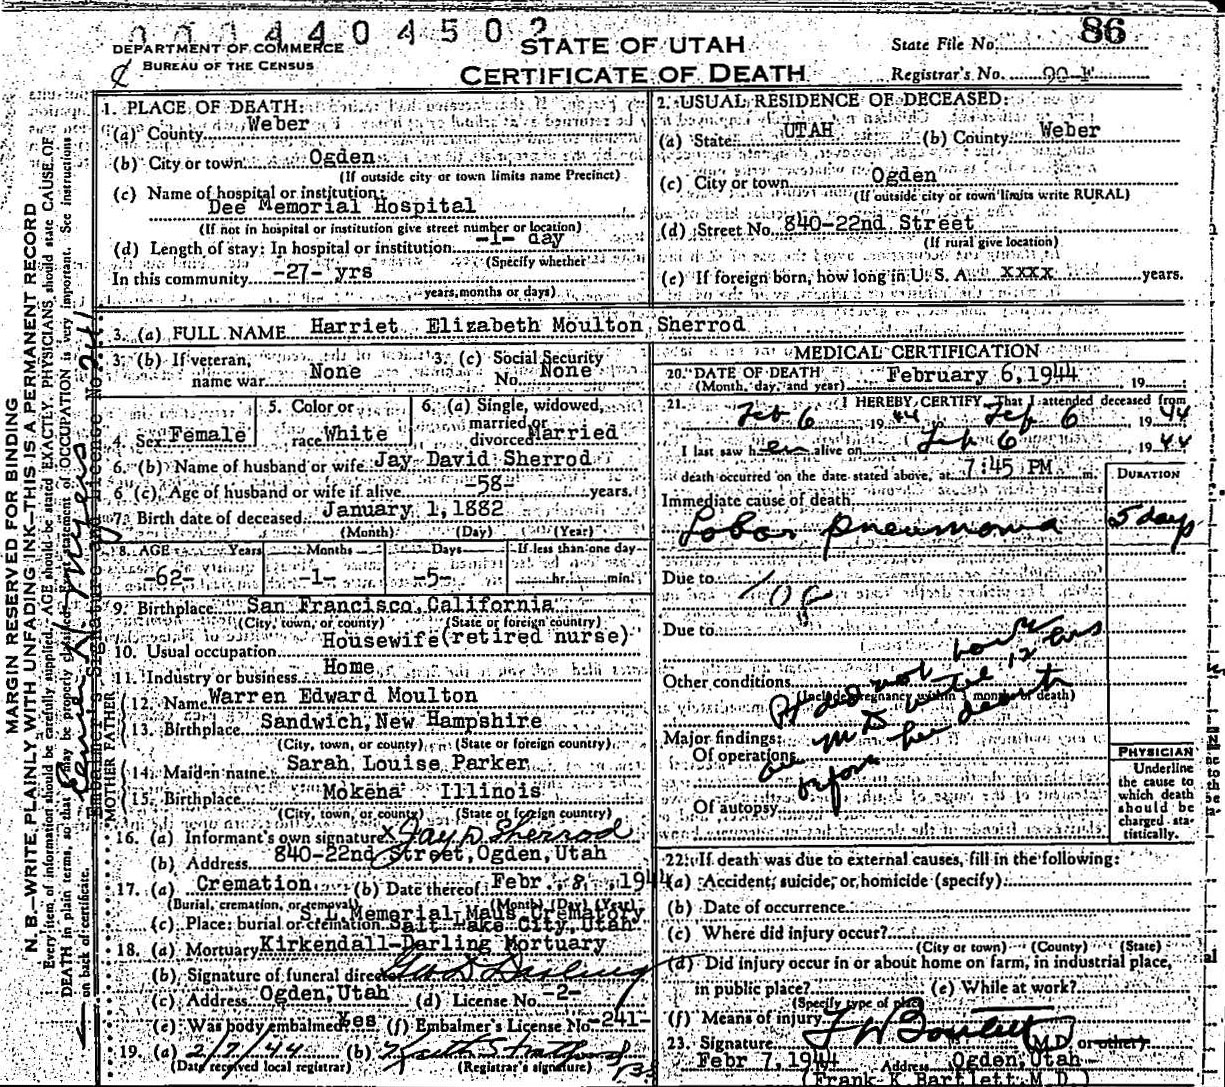 0004404502
DEPARTMENT OF COMMERCE
BUREAU OF THE CENSUS
STATE OF UTAH
CERTIFICATE OF DEATH
State File No. 86
Registrar's No. 90-F
MARGIN RESERVED FOR BINDING
N. B.—WRITE PLAINLY WITH UNFADING INK—THIS IS A PERMANENT RECORD
Every item of information should be carefully supplied. AGE should be stated EXACTLY. PHYSICIANS should state CAUSE OF
DEATH in plain terms, so that it may be properly classified. Exact statement of OCCUPATION is very important. See instructions
on back of certificate.
Embalmer's Signature and License No. 241
1. PLACE OF DEATH:
(a) County Weber
(b) City or town Ogden
(If outside city or town limits name Precinct)
(c) Name of hospital or institution:
Dee Memorial Hospital
(If not in hospital or institution give street number or location)
(d) Length of stay: In hospital or institution -1- day
(Specify whether
In this community -27- yrs
years, months or days)
2. USUAL RESIDENCE OF DECEASED:
(a) State UTAH (b) County Weber
(c) City or town Ogden
(If outside city or town limits write RURAL)
(d) Street No. 840-22nd Street
(If rural give location)
(e) If foreign born, how long in U. S. A. xxxx years.
3. (a) FULL NAME Harriet Elizabeth Moulton Sherrod
3. (b) If veteran, name war None
3. (c) Social Security No. None
4. Sex Female
5. Color or race White
6. (a) Single, widowed, married or divorced Married
6. (b) Name of husband or wife Jay David Sherrod
6 (c). Age of husband or wife if alive -58- years.
7. Birth date of deceased January 1, 1882
(Month) (Day) (Year)
8. AGE Years Months Days If less than one day
-62- -1- -5- hr. min.
9. Birthplace San Francisco, California
(City, town, or county) (State or foreign country)
10. Usual occupation Housewife (retired nurse)
11. Industry or business Home
FATHER
12. Name Warren Edward Moulton
13. Birthplace Sandwich, New Hampshire
(City, town, or county) (State or foreign country)
MOTHER
14. Maiden name Sarah Louise Parker
15. Birthplace Mokena Illinois
(City, town, or county) (State or foreign country)
16. (a) Informant's own signature x Jay D Sherrod
(b) Address 840-22nd Street, Ogden, Utah
17. (a) Cremation (b) Date thereof Febr. 8, 1944
(Burial, cremation, or removal) (Month) (Day) (Year)
(c) Place: burial or cremation S.L. Memorial Maus. Crematory
Salt Lake City, Utah
18. (a) Mortuary Kirkendall-Darling Mortuary
(b) Signature of funeral director Darling
(c) Address Ogden, Utah (d) License No. -2-
(e) Was body embalmed Yes (f) Embalmer's License No. -241-
19. (a) 2/7/44 (b)
(Date received local registrar) (Registrar's signature)
MEDICAL CERTIFICATION
20. DATE OF DEATH February 6, 1944 19
(Month, day, and year)
21. I HEREBY CERTIFY That I attended deceased from
Feb 6 19 44 Feb 6 19 44
I last saw her alive on Feb 6 19 44
death occurred on the date stated above, at 7:45 PM m.
DURATION
Immediate cause of death
Lobar pneumonia 5 days
Due to 108
Due to
Other conditions
(Include pregnancy within 3 months of death)
Pt did not have
an MD until 12 hrs
before her death
Major findings:
Of operations
Of autopsy
PHYSICIAN
Underline
the cause to
which death
should be
charged sta-
tistically.
22. If death was due to external causes, fill in the following:
(a) Accident, suicide, or homicide (specify)
(b) Date of occurrence
(c) Where did injury occur?
(City or town) (County) (State)
(d) Did injury occur in or about home on farm, in industrial place,
in public place? (e) While at work?
(Specify type of place)
(f) Means of injury
23. Signature Bartlett (M.D. or other)
Febr 7, 1944 Address Ogden, Utah
(Frank K Bartlett M.D.)